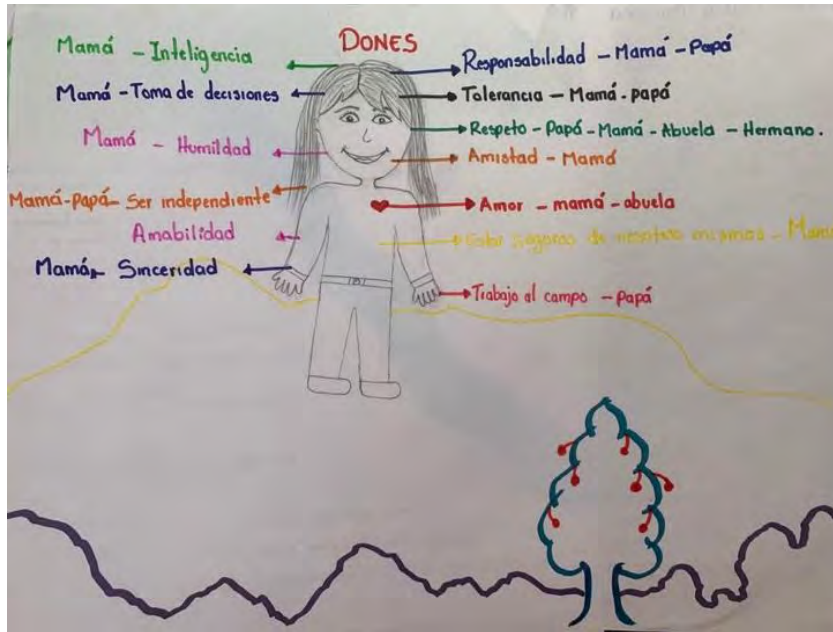 DONES
Mamá - Inteligencia
Mamá - Toma de decisiones
Mamá - Humildad
Mamá-papá- Ser independiente
Amabilidad
Mamá - Sinceridad
Responsabilidad - Mamá - Papá
Tolerancia - Mamá - papá
Respeto - Papá - Mamá - Abuela - Hermano.
Amistad - Mamá
Amor - mamá - abuela
Estar seguros de nosotros mismos - Mamá
Trabajo al campo - Papá